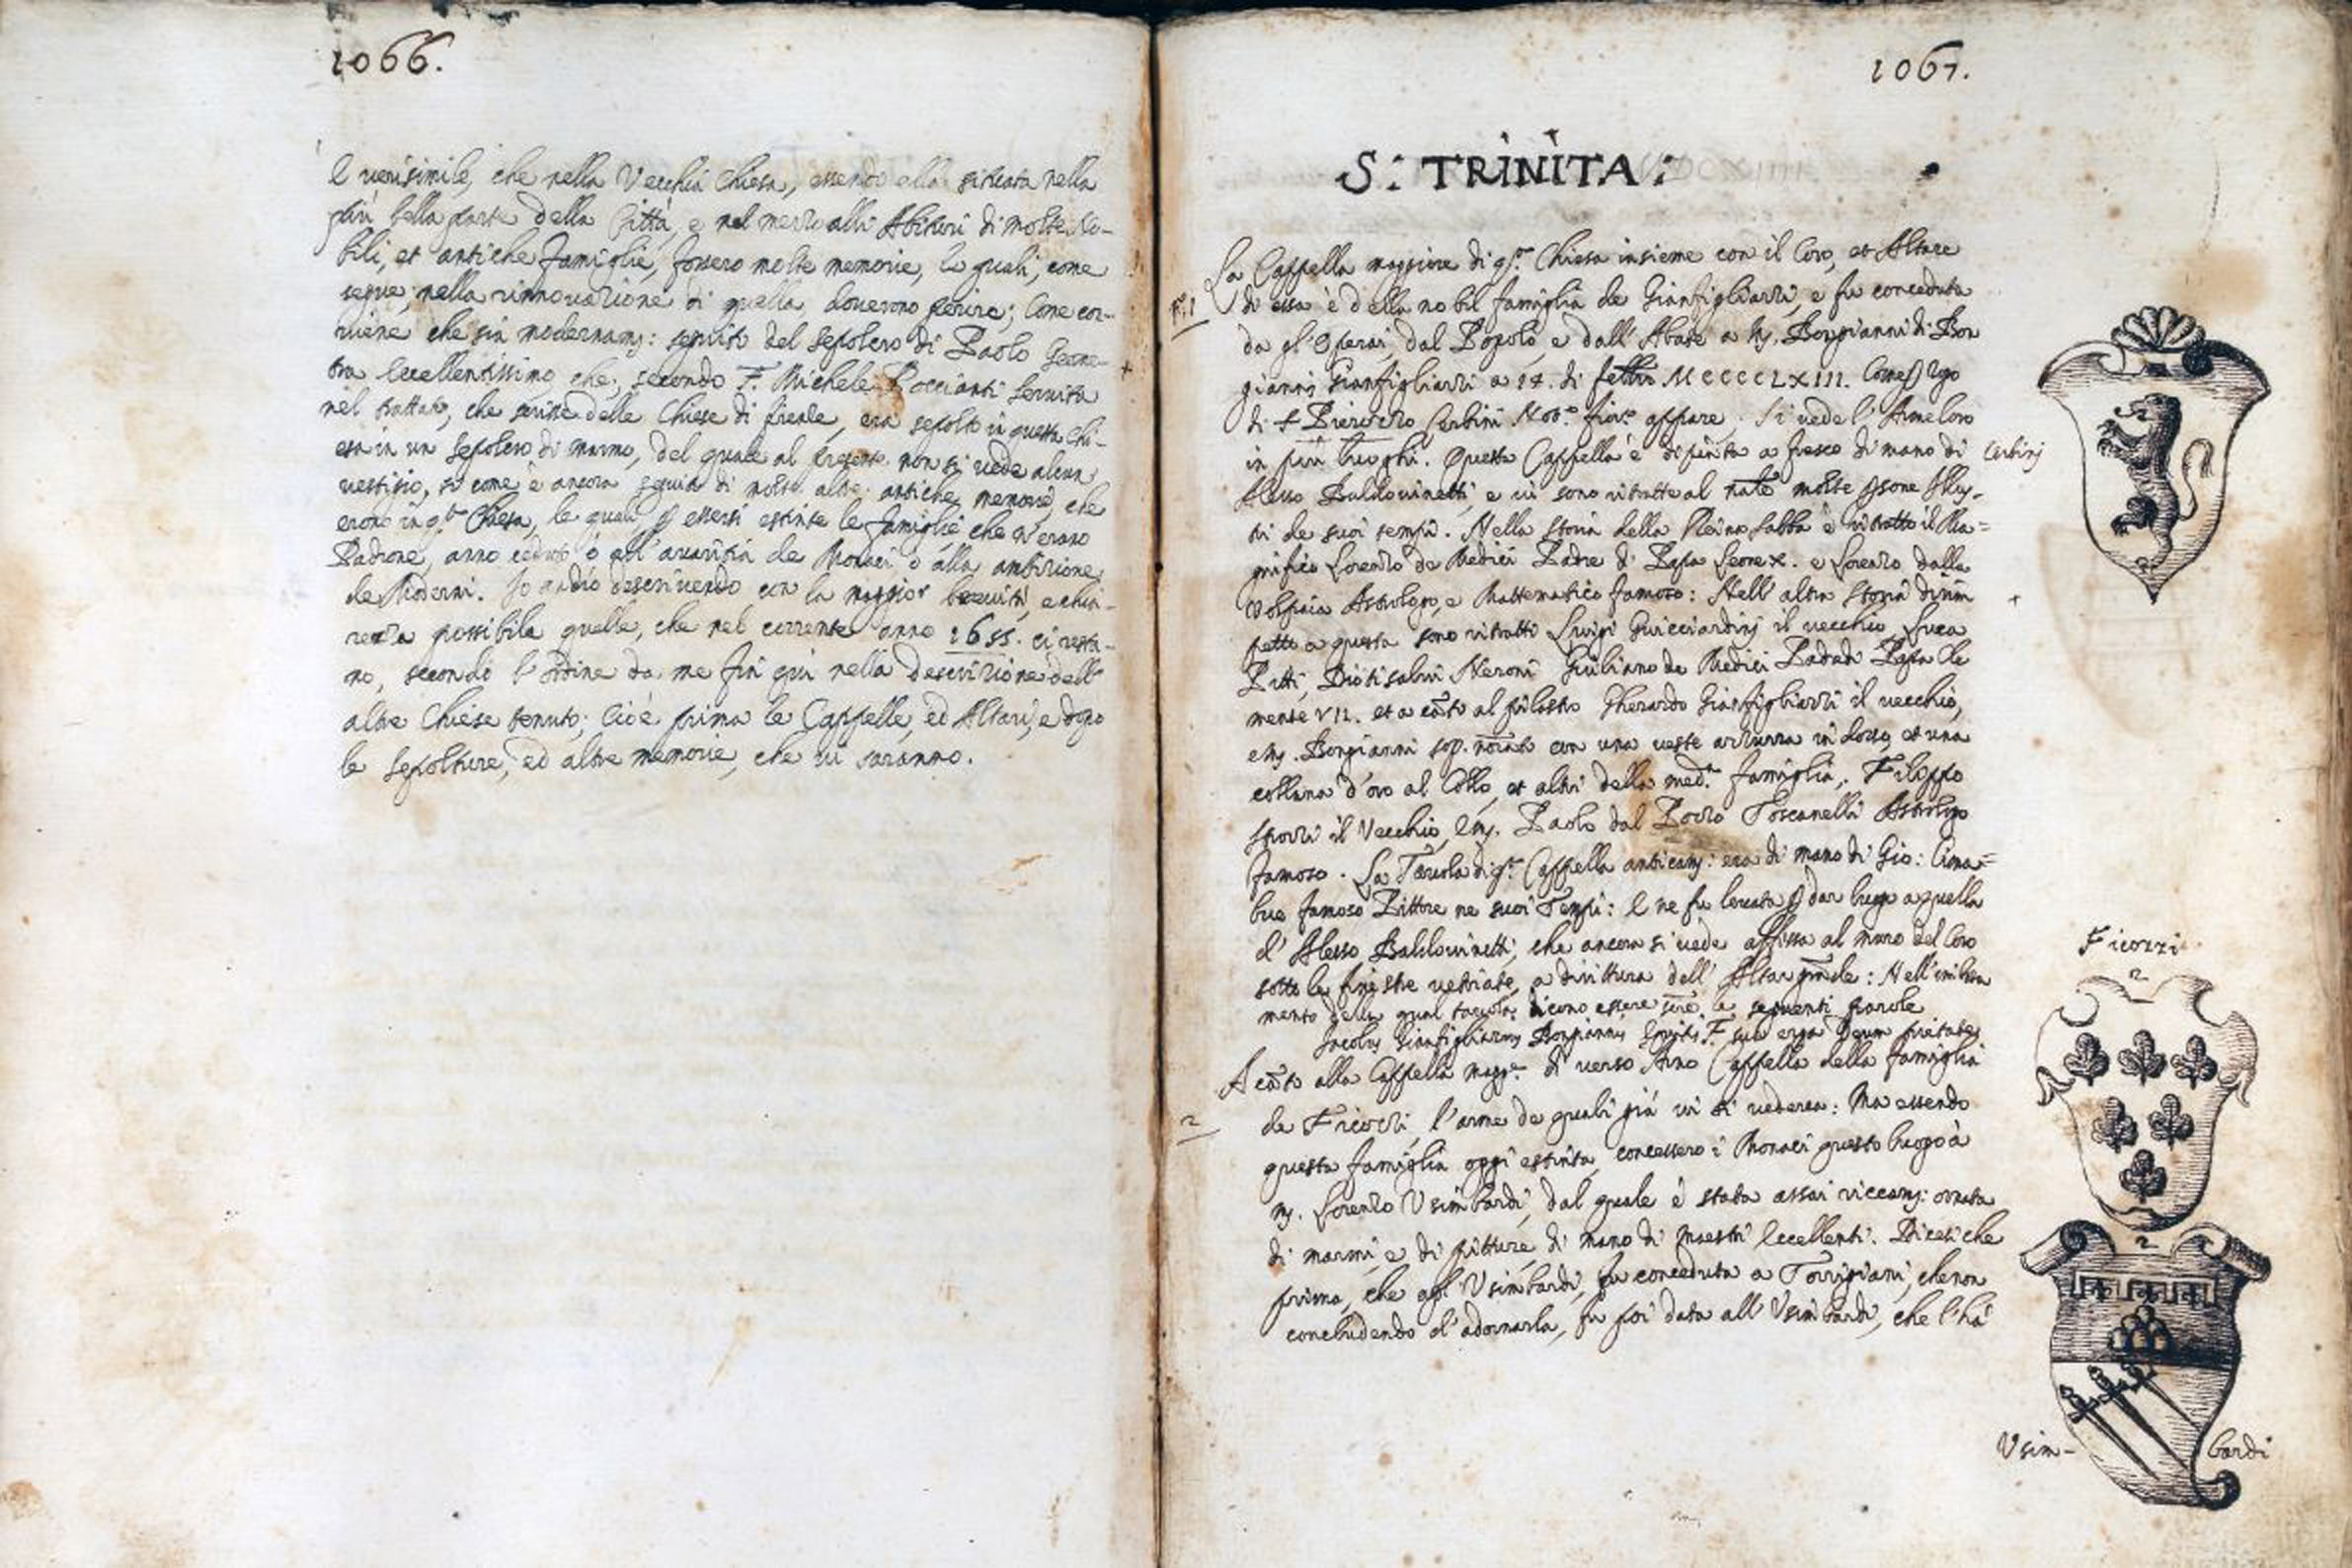 1066.
È verisimile, che nella Vecchia Chiesa, essendo ella situata nella
più bella parte della Città, e nel mezzo alli Abituri di molte No-
bili, et antiche famiglie, fossero molte memorie, le quali, come
segue, nella rinnovazione di quella doverono perire; Come cor-
viene che sia modernamᵗ: seguito del sepolcro di Paolo Geome-
tra eccellentissimo, che, secondo F. Michele Poccianti Servita
nel trattato, che scrisse delle Chiese di firenze, era sepolto in questa Chi-
esa in un sepolcro di marmo, del quale al presente non si vede alcun
vestigio, si come è ancora seguito di molte altre antiche memorie, che
erono in qᵗᵃ Chiesa, le quali p essersi estinte le famiglie che n'erano
Padrone, anno ceduto ò all'avarizia de Monaci ò alla ambizione
de Moderni. Io andrò descrivendo con la maggior brevità, e chia-
rezza possibile quelle, che nel corrente anno 1655. ci resta-
no, secondo l'ordine da me fin qui nella descrizione dell'
altre Chiese tenuto; Cioè prima le Cappelle, ed Altari, e dopo
le sepolture, ed altre memorie, che vi saranno.
1067.
S: TRINITA:
La Cappella maggiore di qᵗᵃ Chiesa insieme con il Coro, et Altare
nº.1 di essa è della nobil famiglia de Gianfigliazzi, e fu conceduta
da gl'Operai, dal Popolo, e dall'Abate a Mˢ. Bongianni di Bon
gianni Gianfigliazzi a 14. di febbrº MCCCCLXIII. Come p rgo
di S Piero Cerbini Notº fiorº appare. Si vede l'Arme loro
in più luoghi. Questa Cappella è dipinta a fresco di mano di
Cerbini
Alesso Baldovinetti, e vi sono ritratte al natle molte psone Illus-
tri de suoi tempi. Nella storia della Reina Sabba è ritratto il Ma=
gnifico Lorenzo de Medici Padre di Papa Leone X. e Lorenzo dalla
Volpaia Astrologo, e Mattematico famoso: Nell'altra storia dirim
petto a questa sono ritratti Luigi Guicciardini il vecchio, Luca
Pitti, Diotisalvi Neroni Giuliano de Medici Pad di Papa Cle
mente VII. et a cāto al pilastro Gherardo Gianfigliazzi il vecchio,
e Mˢ. Bongianni sop. noīato con una veste azzurra in dosso, et una
collana d'oro al Collo, et altri della medª. famiglia, Filippo
Strozzi il Vecchio, e Mˢ. Paolo dal Pozzo Toscanelli Astrologo
famoso. La Tavola di qᵗᵃ Cappella anticamᵗ: era di mano di Gio: Cima=
bue famoso Pittore ne suoi Tempi: E ne fu levata p dar luogo a quella
d'Alesso Baldovinetti, che ancora si vede affissa al muro del Coro
sotto le finestre vetriate, a dirittura dell'Altar prīnale: Nell'imbasa
mento della qual tavola dicono essere le seguenti parole
Jacobus Gianfigliazius Bongiannis Equitis F. sua erga Deum pietate
A cāto alla Cappella maggʳᵉ di verso Arno Cappella della famiglia
2 de Ficozzi, l'arme de quali già vi si vedeva: Ma essendo
questa famiglia oggi estinta, concessero i Monaci questo luogo à
Mˢ. Lorenzo Usimbardi, dal quale è stata assai riccamᵗ: ornata
di marmi, e di pitture di mano di Maestri Eccellenti. Dicesi che
prima, che agl'Usimbardi, fu conceduta a Torrigiani, che non
concludendo d'adornarla, fu poi data all'Usimbardi, che l'hà
Ficozzi
2
2
Usim-
bardi